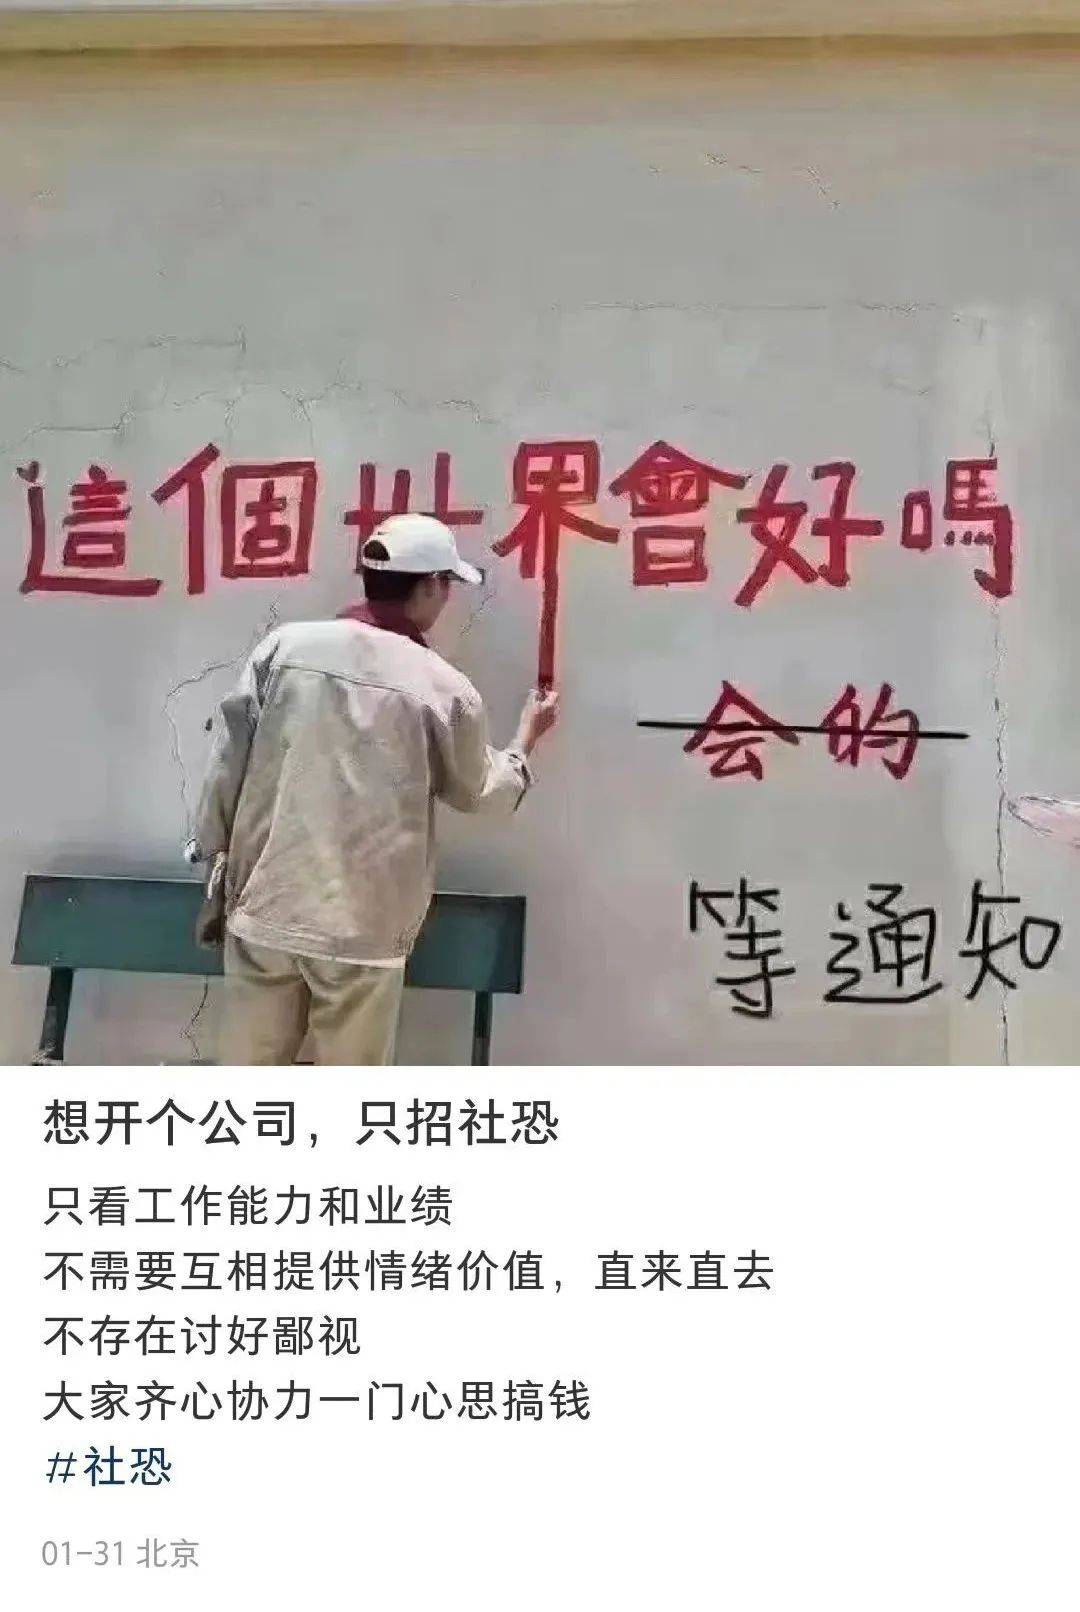 這個世界會好嗎
会的
等通知
想开个公司，只招社恐
只看工作能力和业绩
不需要互相提供情绪价值，直来直去
不存在讨好鄙视
大家齐心协力一门心思搞钱
#社恐
01-31 北京